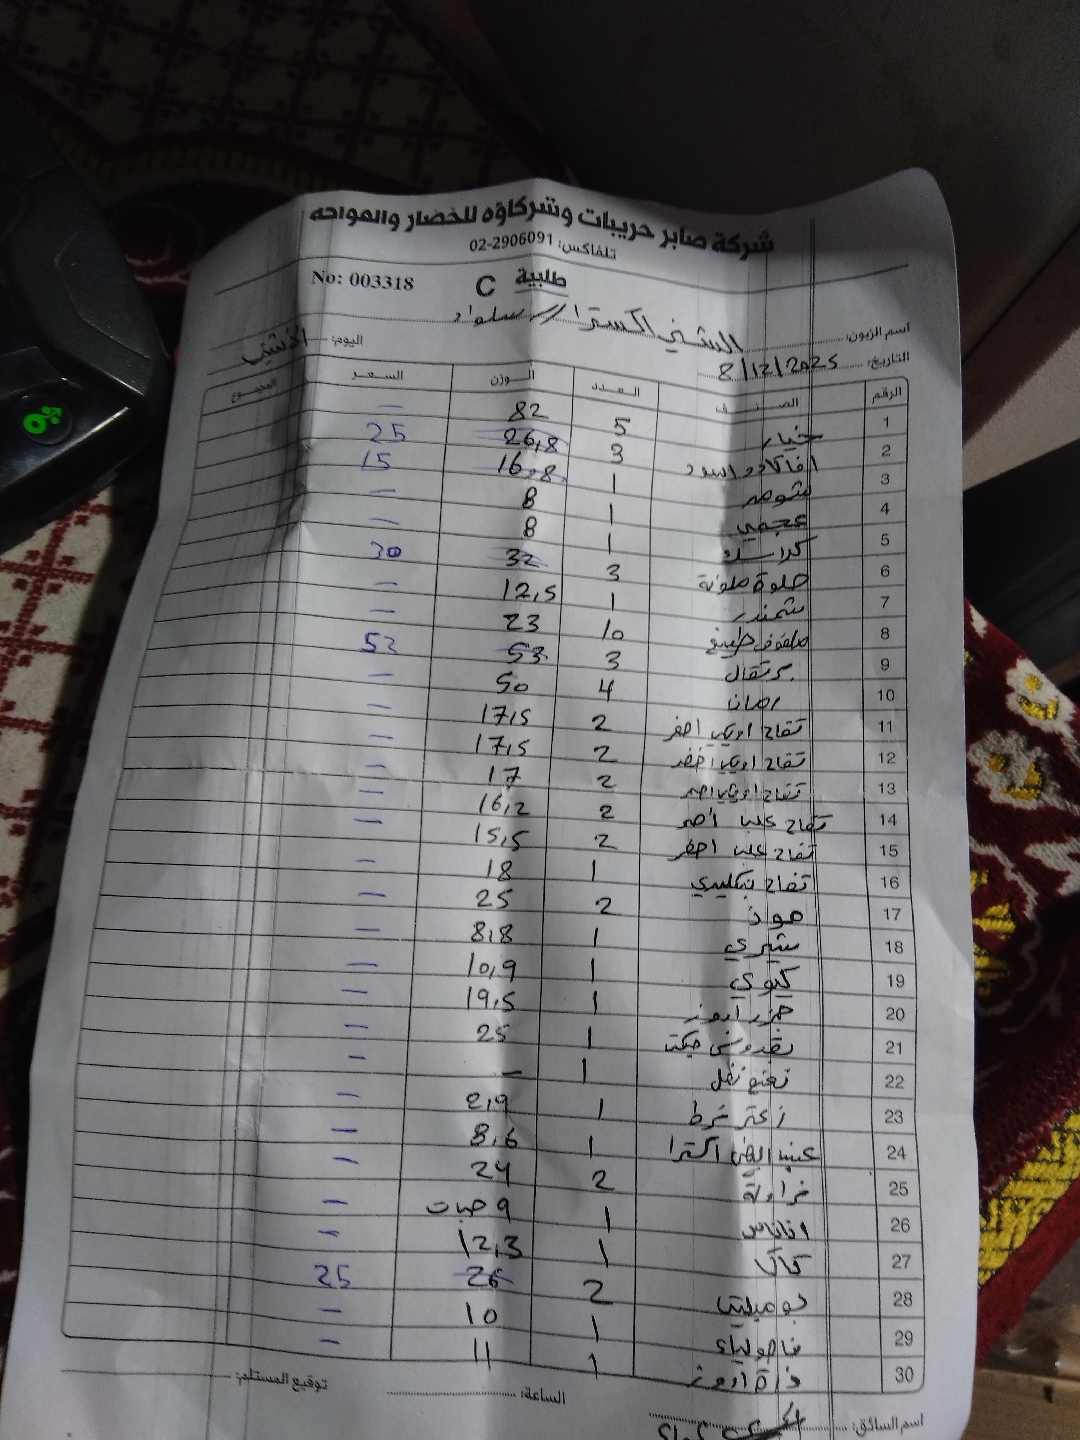 شركة صابر حريبات وشركاؤه للخضار والفواكه
تلفاكس: 02-2906091
No: 003318 طلبية C
اسم الزبون: الشيخ اكسترا // سلواد
التاريخ: 8/12/2025 اليوم: الاثنين
الرقم الصنف العدد الوزن السعر المجموع
1 خيار 5 82 —
2 افاكادو اسود 3 26,8 25
3 شومر 1 16,8 15
4 عجمي 1 8 —
5 1 8 —
6 حلوة ملونة 3 32 30
7 شمندر 1 12,5 —
8 ملفوف 10 23 —
9 برتقال 3 53 52
10 رمان 4 50 —
11 تفاح اصفر 2 17,5 —
12 تفاح اخضر 2 17,5 —
13 تفاح احمر 2 17 —
14 تفاح علب احمر 2 16,2 —
15 تفاح علب اصفر 2 15,5 —
16 تفاح 1 18 —
17 موز 2 25 —
18 شيري 1 8,8 —
19 كيوي 1 10,9 —
20 جزر 1 19,5 —
21 بقدونس 1 25 —
22 نعنع نفل 1 — —
23 زعتر فرط 1 2,9 —
24 عنب اكسترا 1 8,6 —
25 فراولة 2 24 —
26 اناناس 1 9 حبات —
27 كاكا 1 12,3 —
28 بوميلتا 2 26 25
29 فاصولياء 1 10 —
30 ذرة 1 11 —
اسم السائق: الساعة: توقيع المستلم: